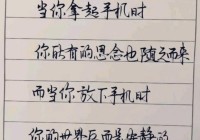 当你拿起手机时
你所有的思念也随之而来
而当你放下手机时
你的世界反而是安静的